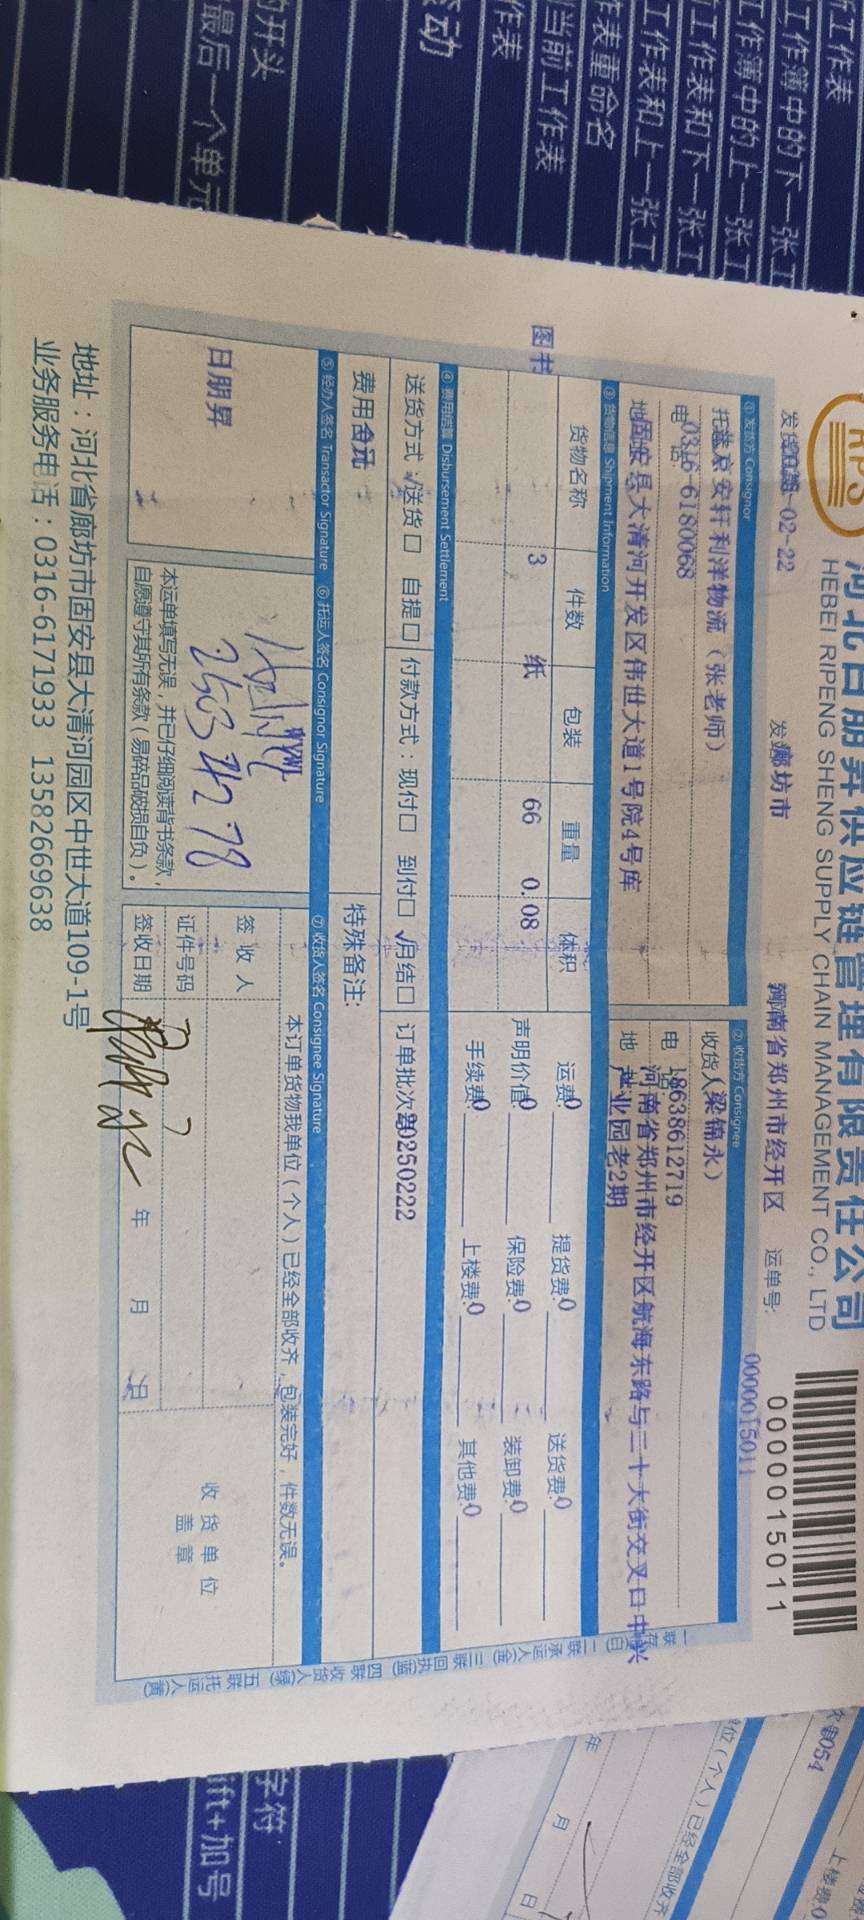 河北日朋昇供应链管理有限责任公司
HEBEI RIPENG SHENG SUPPLY CHAIN MANAGEMENT CO., LTD
0000015011
0000015011
-02-22
廊坊市
河南省郑州市经开区
运单号:
① 发货方 Consignor
京安轩利洋物流（张老师）
0316-6180068
固安县大清河开发区伟世大道1号院4号库
② 收货方 Consignee
收货人（梁锦永）
电
18638612719
地
河南省郑州市经开区航海东路与二十大街交叉口中兴
产业园老2期
③ 货物信息 Shipment Information
货物名称
件数
包装
重量
体积
图书
3
纸
66
0.08
运费0
提货费:0
送货费:0
声明价值0
保险费:0
装卸费:0
手续费0
上楼费:0
其他费:0
④ 费用结算 Disbursement Settlement
送货方式 √送货□ 自提□
付款方式：现付□ 到付□ √月结□
订单批次
20250222
费用合
元
特殊备注:
⑤ 经办人签名 Transactor Signature
⑥ 托运人签名 Consignor Signature
⑦ 收货人签名 Consignee Signature
日朋昇
本运单填写无误，并已仔细阅读背书条款，
自愿遵守其所有条款（易碎品破损自负）。
本订单货物我单位（个人）已经全部收齐，包装完好，件数无误。
签 收 人
证件号码
签收日期
年 月 日
收 货 单 位
盖 章
一联存
二联 承运人(金)
三联 回执(蓝)
四联 收货人(绿)
五联 托运人(黄)
地址：河北省廊坊市固安县大清河园区中世大道109-1号
业务服务电话：0316-6171933 13582669638
工作表
工作簿中的下一张工
工作簿中的上一张工
工作表和下一张工
工作表和上一张工
作表重命名
当前工作表
作表
动
的开头
最后一个单元
字符
ift+加号
位（个人）已经全部收齐
年 月 日
上楼费:0